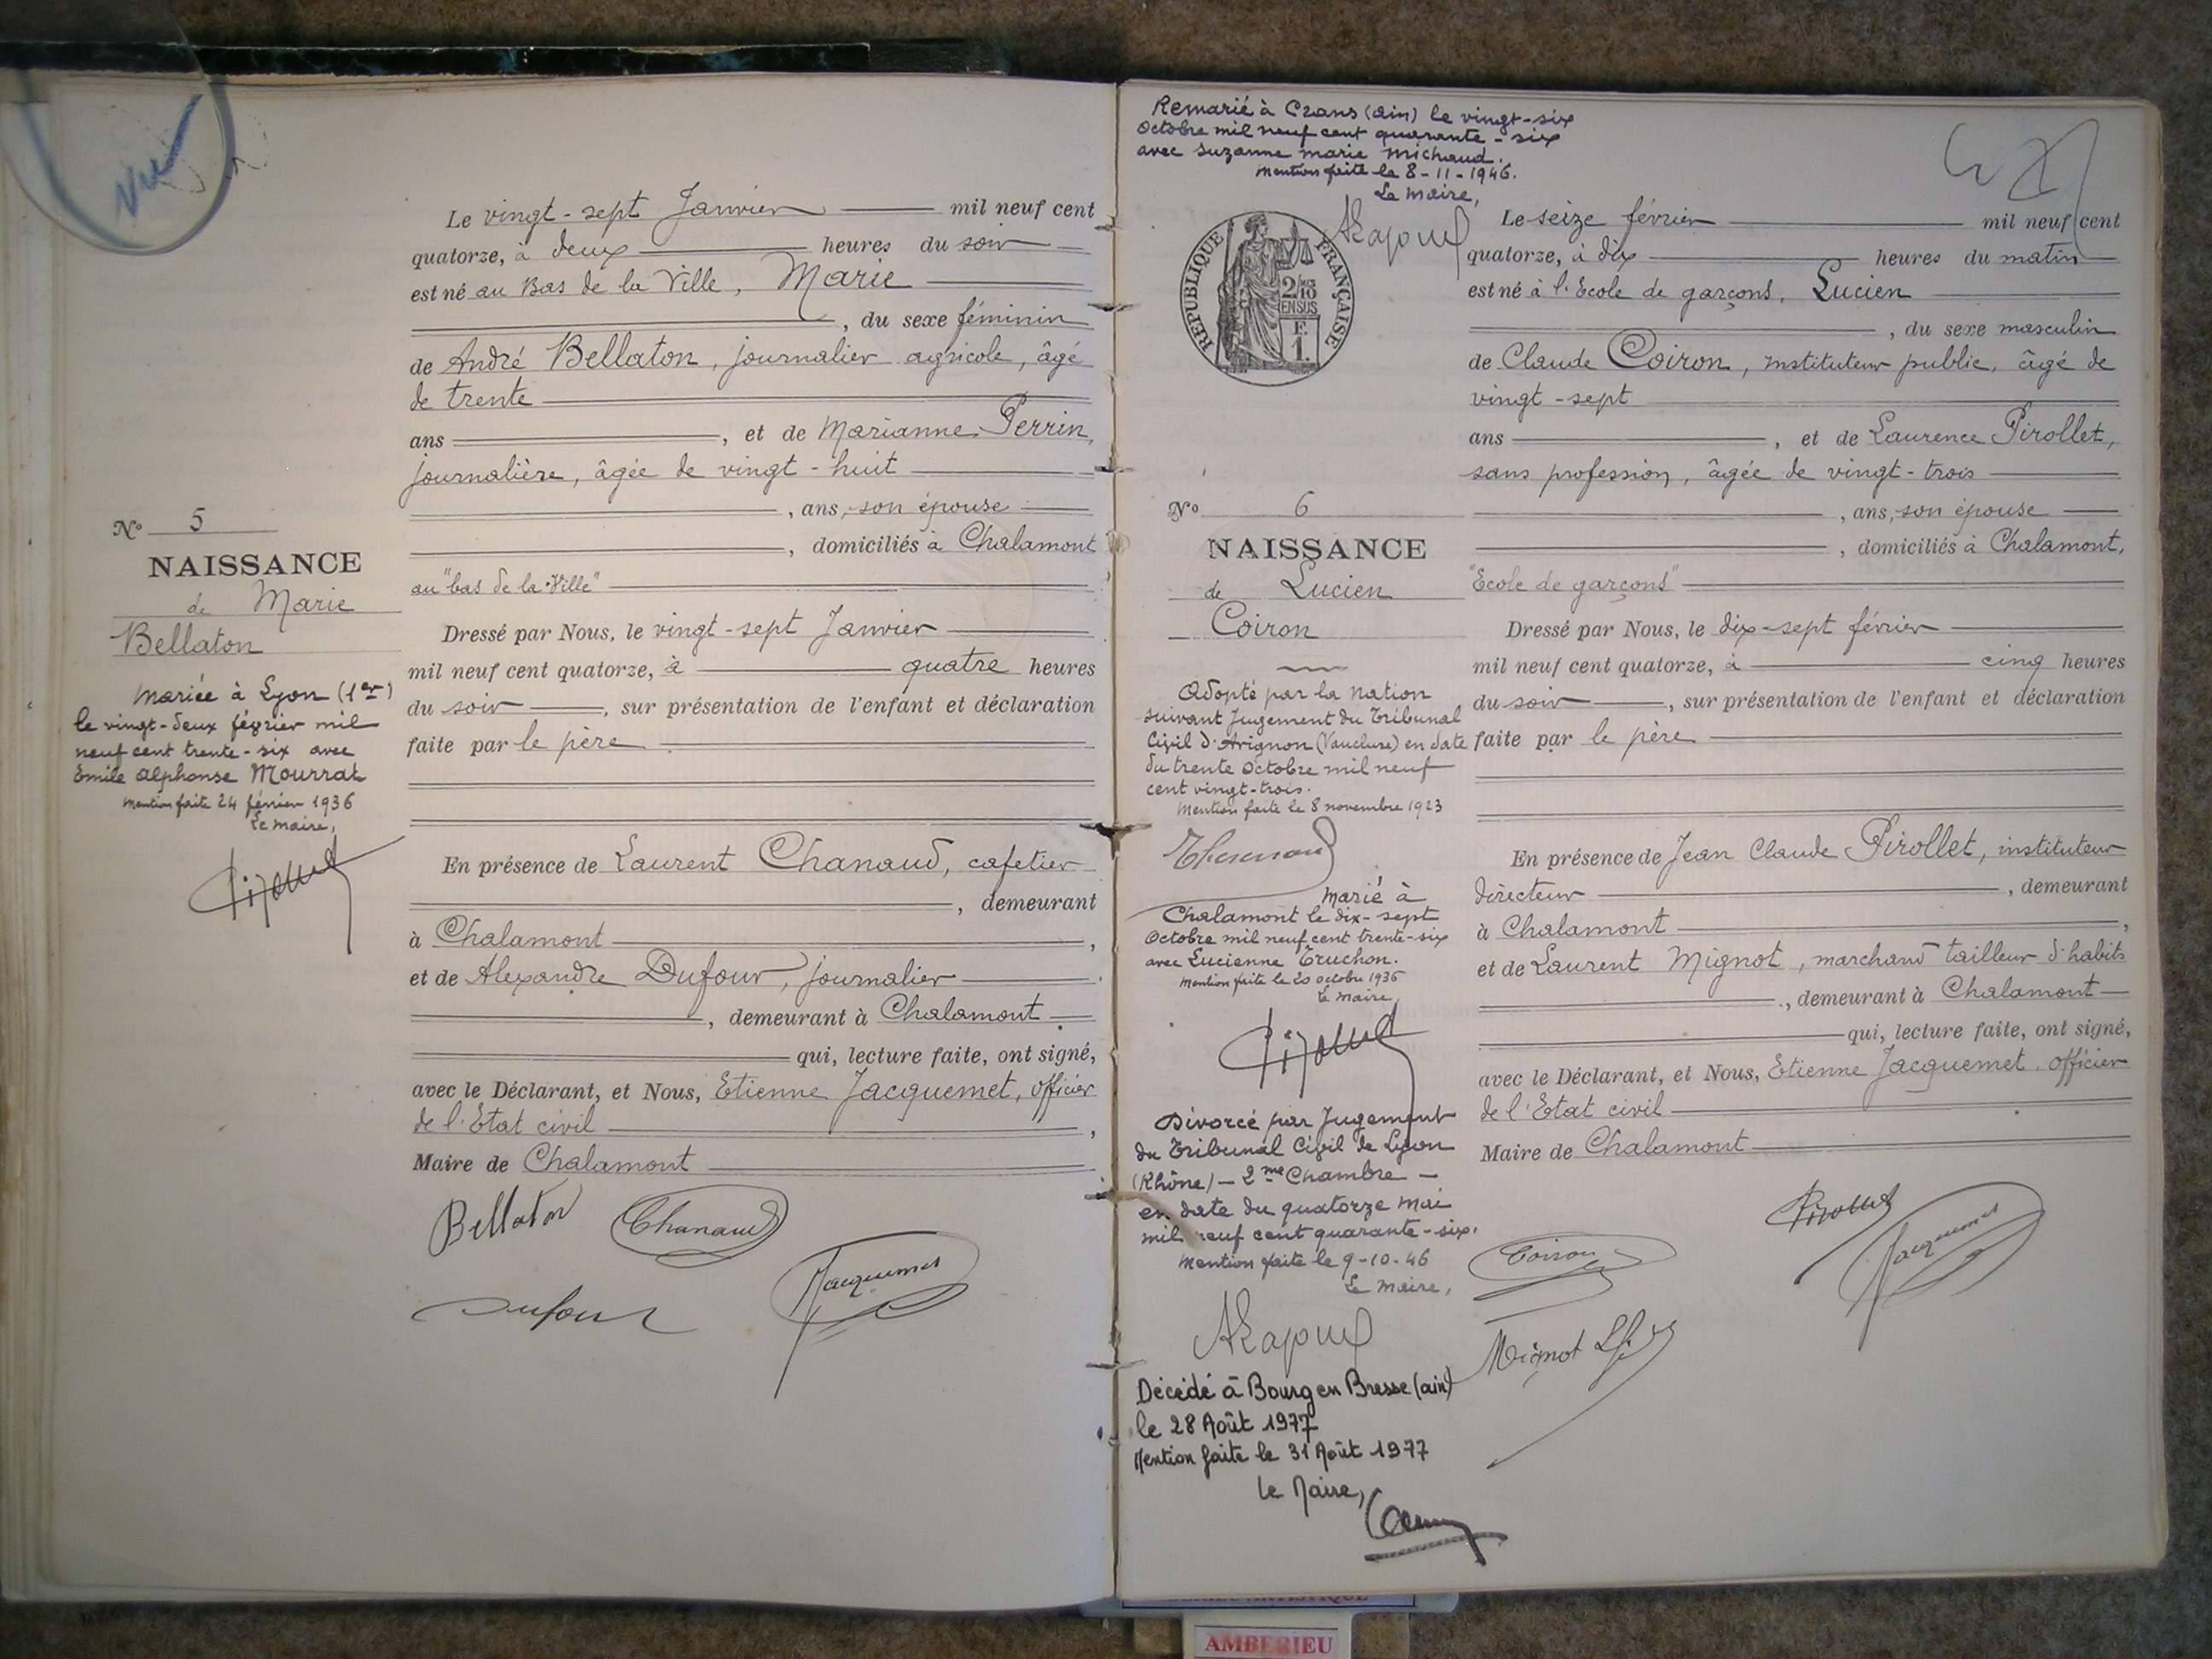 Vu
Le vingt-sept Janvier mil neuf cent
quatorze, à deux heures du soir
est né au Bas de la Ville, Marie
, du sexe féminin
de André Bellaton, journalier agricole, âgé
de trente
ans , et de Marianne Perrin,
journalière, âgée de vingt-huit
, ans, son épouse
, domiciliés à Chalamont
au "bas de la Ville"
Dressé par Nous, le vingt-sept Janvier
mil neuf cent quatorze, à quatre heures
du soir , sur présentation de l'enfant et déclaration
faite par le père
En présence de Laurent Chanaud, cafetier
, demeurant
à Chalamont ,
et de Alexandre Dufour, journalier
, demeurant à Chalamont
qui, lecture faite, ont signé,
avec le Déclarant, et Nous, Etienne Jacquemet, officier
de l'Etat civil ,
Maire de Chalamont
Bellaton Chanaud
Dufour Jacquemet
No 5
NAISSANCE
de Marie
Bellaton
Mariée à Lyon (1er)
le vingt-deux février mil
neuf cent trente-six avec
Emile Alphonse Mourrat
Mention faite 24 février 1936
Le Maire,
Remarié à Crans (Ain) le vingt-six
Octobre mil neuf cent quarante-six
avec Suzanne Marie Michaud.
Mention faite le 8-11-1946.
Le Maire,
RÉPUBLIQUE FRANÇAISE
2/10
EN SUS
F.
1.
No 6
NAISSANCE
de Lucien
Coiron
Adopté par la Nation
suivant Jugement du Tribunal
Civil d'Avignon (Vaucluse) en date
du trente Octobre mil neuf
cent vingt-trois.
Mention faite le 8 novembre 1923
Marié à
Chalamont le dix-sept
Octobre mil neuf cent trente-six
avec Lucienne Truchon.
Mention faite le 20 octobre 1936
Le Maire,
Divorcé par Jugement
du Tribunal Civil de Lyon
(Rhône) - 2me Chambre -
en date du quatorze Mai
mil neuf cent quarante-six.
Mention faite le 9-10-46
Le Maire,
Décédé à Bourg en Bresse (Ain)
le 28 Août 1977
Mention faite le 31 Août 1977
Le Maire,
Le seize février mil neuf cent
quatorze, à dix heures du matin
est né à l'Ecole de garçons, Lucien
, du sexe masculin
de Claude Coiron, instituteur public, âgé de
vingt-sept
ans , et de Laurence Pirollet,
sans profession, âgée de vingt-trois
, ans, son épouse
, domiciliés à Chalamont,
"Ecole de garçons"
Dressé par Nous, le dix-sept février
mil neuf cent quatorze, à cinq heures
du soir , sur présentation de l'enfant et déclaration
faite par le père
En présence de Jean Claude Pirollet, instituteur
directeur , demeurant
à Chalamont ,
et de Laurent Mignot, marchand tailleur d'habits
, demeurant à Chalamont
qui, lecture faite, ont signé,
avec le Déclarant, et Nous, Etienne Jacquemet, officier
de l'Etat civil
Maire de Chalamont
Coiron Pirollet Jacquemet
Mignot
AMBERIEU